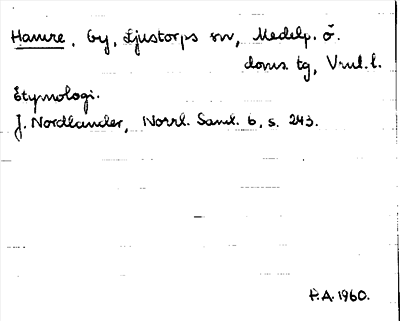 Hamre, by, Ljustorps sn, Medelp. ö.
doms. tg, Vnl. l.
Etymologi.
J. Nordlander, Norrl. Saml. 6, s. 243.
P.A. 1960.